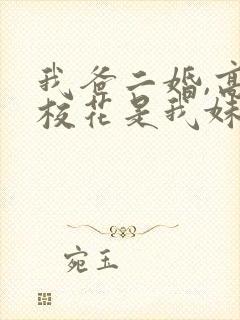 我爸二婚,高
校花是我妹
宛玉